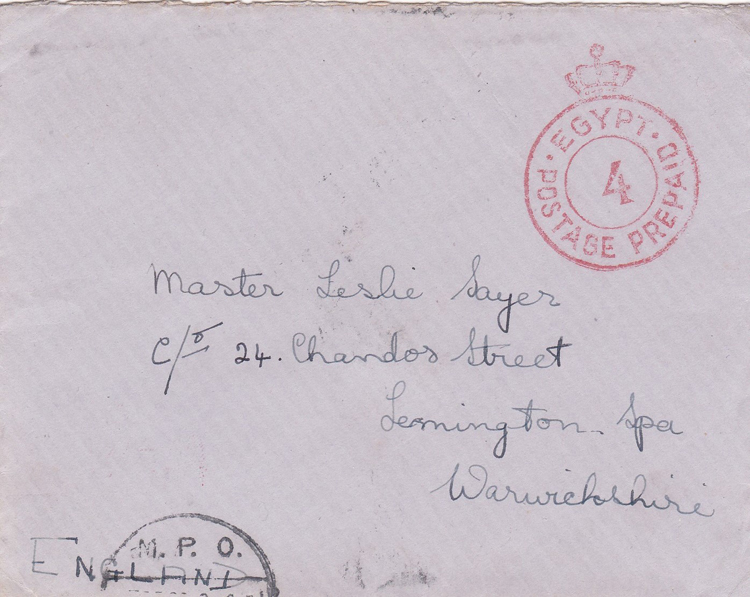 EGYPT
POSTAGE PREPAID
4
Master Leslie Sayer
c/o 24. Chandos Street
Lemington Spa
Warwickshire
M. P. O.
ENGLAND